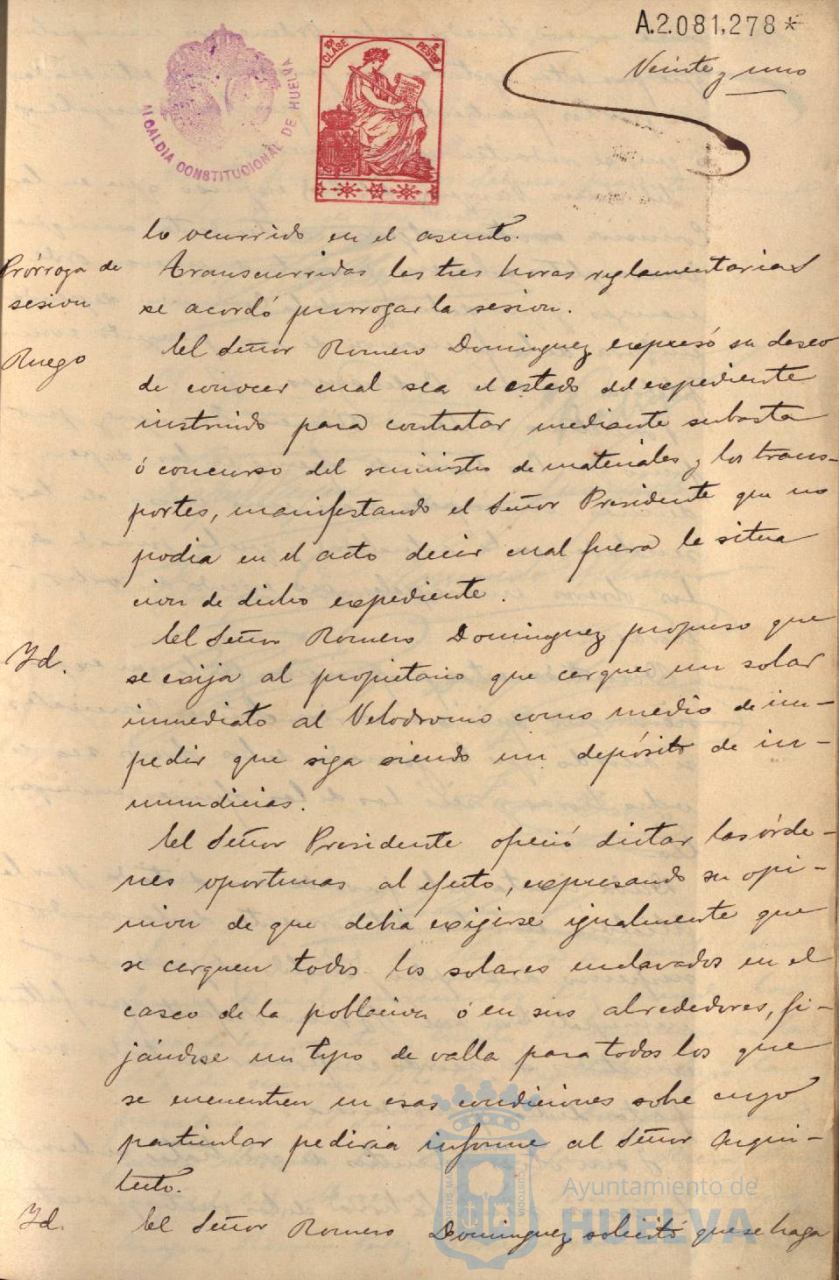 A.2.081,278*
Veinte y uno
10ª CLASE
PESTAS
ALCALDIA CONSTITUCIONAL DE HUELVA
lo ocurrido en el asunto.
Prórroga de sesion
Transcurridas las tres horas reglamentarias
se acordó prorrogar la sesion.
Ruego
El Señor Romero Dominguez expresó su deseo
de conocer cual sea el estado del expediente
instruido para contratar mediente subasta
ó concurso del suministro de materiales y los trans-
portes, manifestando el Señor Presidente que no
podia en el acto decir cual fuera la situa
cion de dicho expediente.
Yd.
El Señor Romero Dominguez propuso que
se exija al propietario que cerque un solar
inmediato al Velodromo como medio de im-
pedir que siga siendo un depósito de in-
mundicias.
El Señor Presidente ofreció dictar las órde-
nes oportunas al efecto, expresando su opi-
nion de que debia exigirse igualmente que
se cerquen todos los solares enclavados en el
casco de la poblacion ó en sus alrededores, fi-
jándose un tipo de valla para todos los que
se encuentren en esas condiciones sobre cuyo
particular pediria informe al Señor Arqui-
tecto.
Yd.
El Señor Romero Dominguez solicitó que se haga
Ayuntamiento de
HUELVA